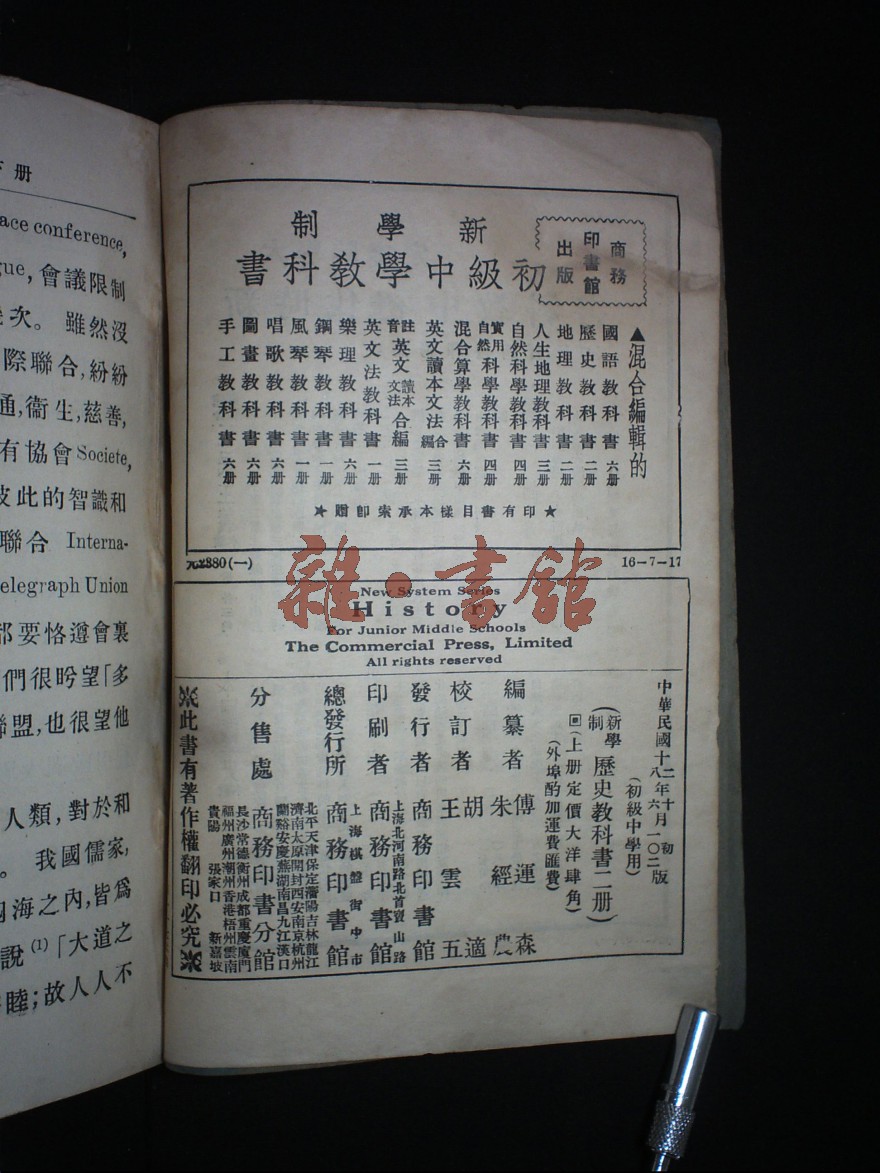 下册
ace conference,
gue, 會議限制
次。 雖然沒
際聯合,紛紛
通,衞生,慈善,
有協會Societe,
彼此的智識和
聯合 Interna-
elegraph Union
都要恪遵會裏
們很盻望「多
聯盟,也很望他
人類,對於和
。 我國儒家,
海之內,皆爲
說⁽¹⁾「大道之
睦;故人人不
商務
印書館
出版
新學制
初級中學教科書
▲混合編輯的
國語教科書 六册
歷史教科書 二册
地理教科書 二册
人生地理教科書 三册
自然科學教科書 四册
實用自然科學教科書 四册
混合算學教科書 六册
英文讀本文法合編 三册
註音英文讀本文法合編 三册
英文法教科書 一册
樂理教科書 六册
鋼琴教科書 一册
風琴教科書 一册
唱歌教科書 六册
圖畫教科書 六册
手工教科書 六册
★印有書目樣本承索卽贈★
元2380(一)
16-7-17
New System Series
History
For Junior Middle Schools
The Commercial Press, Limited
All rights reserved
中華民國十二年十月初版
十八年六月一〇二版
(初級中學用)
(新學制 歷史教科書二册)
(上册定價大洋肆角)
(外埠酌加運費匯費)
編纂者 傅運森 朱經農
校訂者 胡適 王雲五
發行者 商務印書館
上海北河南路北首寶山路
印刷者 商務印書館
上海棋盤街中市
總發行所 商務印書館
北平天津保定瀋陽吉林龍江
濟南太原開封西安南京杭州
蘭谿安慶蕪湖南昌九江漢口
分售處 商務印書分館
長沙常德衡州成都重慶廈門
福州廣州潮州香港梧州雲南
貴陽 張家口 新嘉坡
※此書有著作權翻印必究※
雜·書館